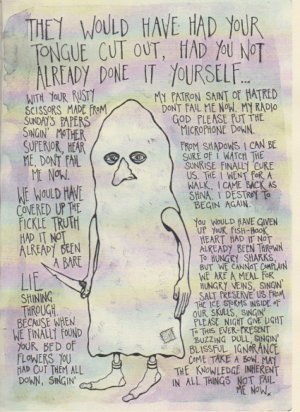 THEY WOULD HAVE HAD YOUR
TONGUE CUT OUT, HAD YOU NOT
ALREADY DONE IT YOURSELF...
WITH YOUR RUSTY
SCISSORS MADE FROM
SUNDAY'S PAPERS
SINGIN' MOTHER
SUPERIOR, HEAR
ME, DON'T FAIL
ME NOW.
WE WOULD HAVE
COVERED UP THE
FICKLE TRUTH
HAD IT NOT
ALREADY BEEN
A BARE
LIE
SHINING
THROUGH,
BECAUSE WHEN
WE FINALLY FOUND
YOUR BED OF
FLOWERS YOU
HAD CUT THEM ALL
DOWN, SINGIN'
MY PATRON SAINT OF HATRED
DON'T FAIL ME NOW. MY RADIO
GOD PLEASE PUT THE
MICROPHONE DOWN.
FROM SHADOWS I CAN BE
SURE OF I WATCH THE
SUNRISE FINALLY CURE
US. THE I WENT FOR A
WALK, I CAME BACK AS
SHIVA, I DESTROY TO
BEGIN AGAIN.
YOU WOULD HAVE GIVEN
UP YOUR FISH-HOOK
HEART HAD IT NOT
ALREADY BEEN THROWN
TO HUNGRY SHARKS,
BUT WE CANNOT COMPLAIN
WE ARE A MEAL FOR
HUNGRY VEINS, SINGIN'
SALT PRESERVE US FROM
THE ICE STORMS INSIDE OF
OUR SKULLS, SINGIN'
PLEASE NIGHT GIVE LIGHT
TO THIS EVER-PRESENT
BUZZING DULL, SINGIN'
BLISSFUL IGNORANCE
COME TAKE A BOW, MAY
THE KNOWLEDGE INHERENT
IN ALL THINGS NOT FAIL
ME NOW.